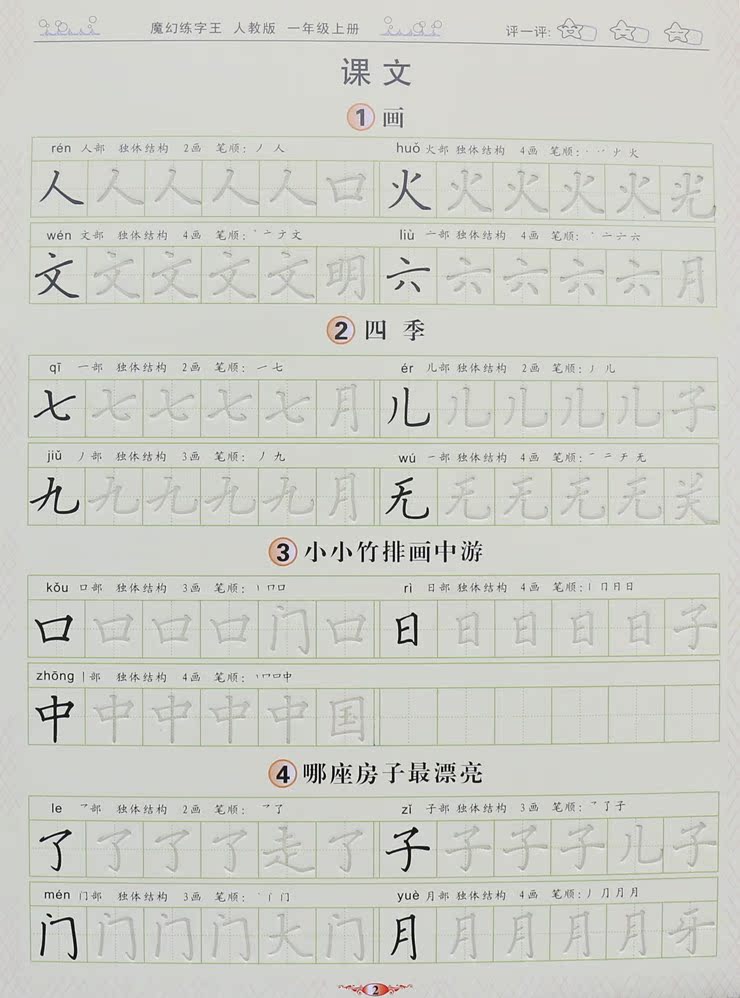 魔幻练字王 人教版 一年级上册 评一评:
课文
1 画
rén 人部 独体结构 2画 笔顺: 丿 人
huǒ 火部 独体结构 4画 笔顺: 丶 丷 少 火
人 人 人 人 人 口 火 火 火 火 火 光
wén 文部 独体结构 4画 笔顺: 丶 亠 ナ 文
liù 亠部 独体结构 4画 笔顺: 丶 亠 六 六
文 文 文 文 文 明 六 六 六 六 六 月
2 四季
qī 一部 独体结构 2画 笔顺: 一 七
ér 儿部 独体结构 2画 笔顺: 丿 儿
七 七 七 七 七 月 儿 儿 儿 儿 儿 子
jiǔ 丿部 独体结构 3画 笔顺: 丿 九
wú 一部 独体结构 4画 笔顺: 一 二 チ 无
九 九 九 九 九 月 无 无 无 无 无 关
3 小小竹排画中游
kǒu 口部 独体结构 3画 笔顺: 丨 冂 口
rì 日部 独体结构 4画 笔顺: 丨 冂 日 日
口 口 口 口 门 口 日 日 日 日 日 子
zhōng 丨部 独体结构 4画 笔顺: 丨 冂 口 中
中 中 中 中 中 国
4 哪座房子最漂亮
le 乛部 独体结构 2画 笔顺: 乛 了
zǐ 子部 独体结构 3画 笔顺: 乛 了 子
了 了 了 了 走 了 子 子 子 子 儿 子
mén 门部 独体结构 3画 笔顺: 丶 丨 门
yuè 月部 独体结构 4画 笔顺: 丿 冂 月 月
门 门 门 门 大 门 月 月 月 月 月 牙
2